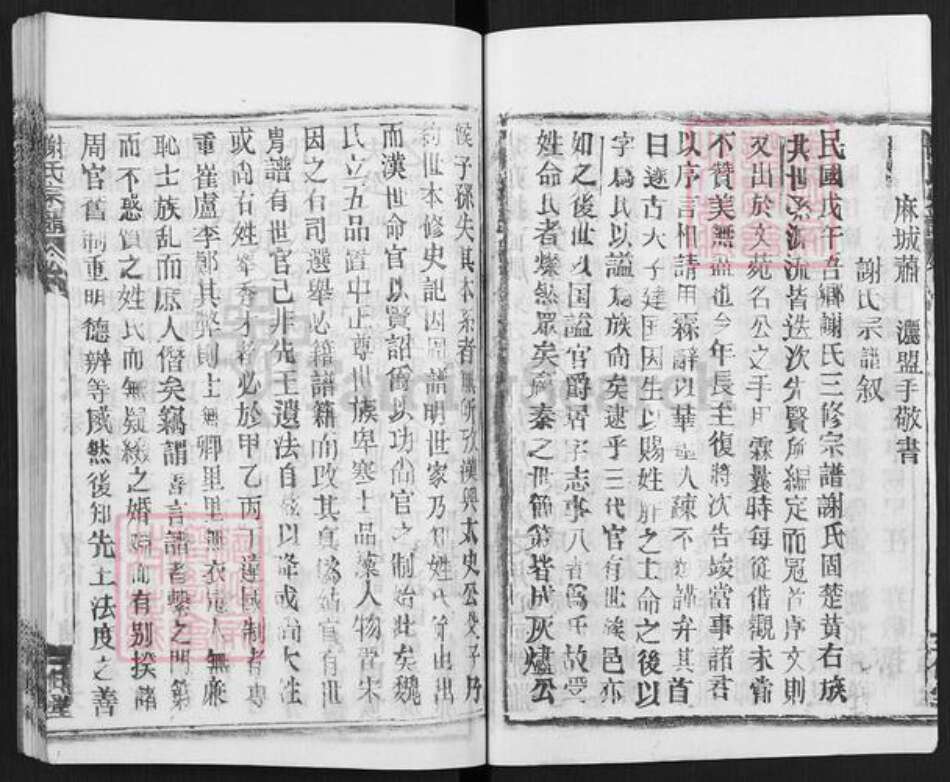 麻城蕭　灑盟手敬書
謝氏宗譜叙
民國戊午吾鄉謝氏三修宗譜謝氏固楚黃右族
其世系源流皆迭次先賢所編定而冠首序文則
又出於文苑名公之手用霖曩時每從借觀未嘗
不贊美無盡也今年長至復將次告竣當事諸君
以序言相請用霖辭以華人疎不獲請弁其首
曰遂古天子建国因生以賜姓胙之土命之後以
字為氏以謚為族尚矣逮乎三代官有世族邑亦
如之後世以国謚官爵居字志事八者為氏故受
姓命氏者燦然眾矣秦之世簡策皆成灰燼公
侯子孫失其本系者無所攷漢興太史公父子乃
約世本修史記因周譜明世家乃知姓氏所由出
而漢世命官以賢詔爵以功尚官之制始此矣魏
氏立五品置中正尊世族卑寒士品藻人物晋宋
因之有司選舉必籍譜籍而攷其真偽始有世
胄譜有世官已非先王遺法自茲以降或尚大姓
或尚右姓舉秀才者必於甲乙丙丁違國制者專
重崔盧李鄭其弊則士無鄉里里無衣冠人無廉
恥士族乱而庶人僭矣竊謂善言譜者繫之門第
而不惑質之姓氏而無疑綴之婚姻而有别揆諸
周官舊制重明德辨等威然後知先王法度之善
謝氏宗譜